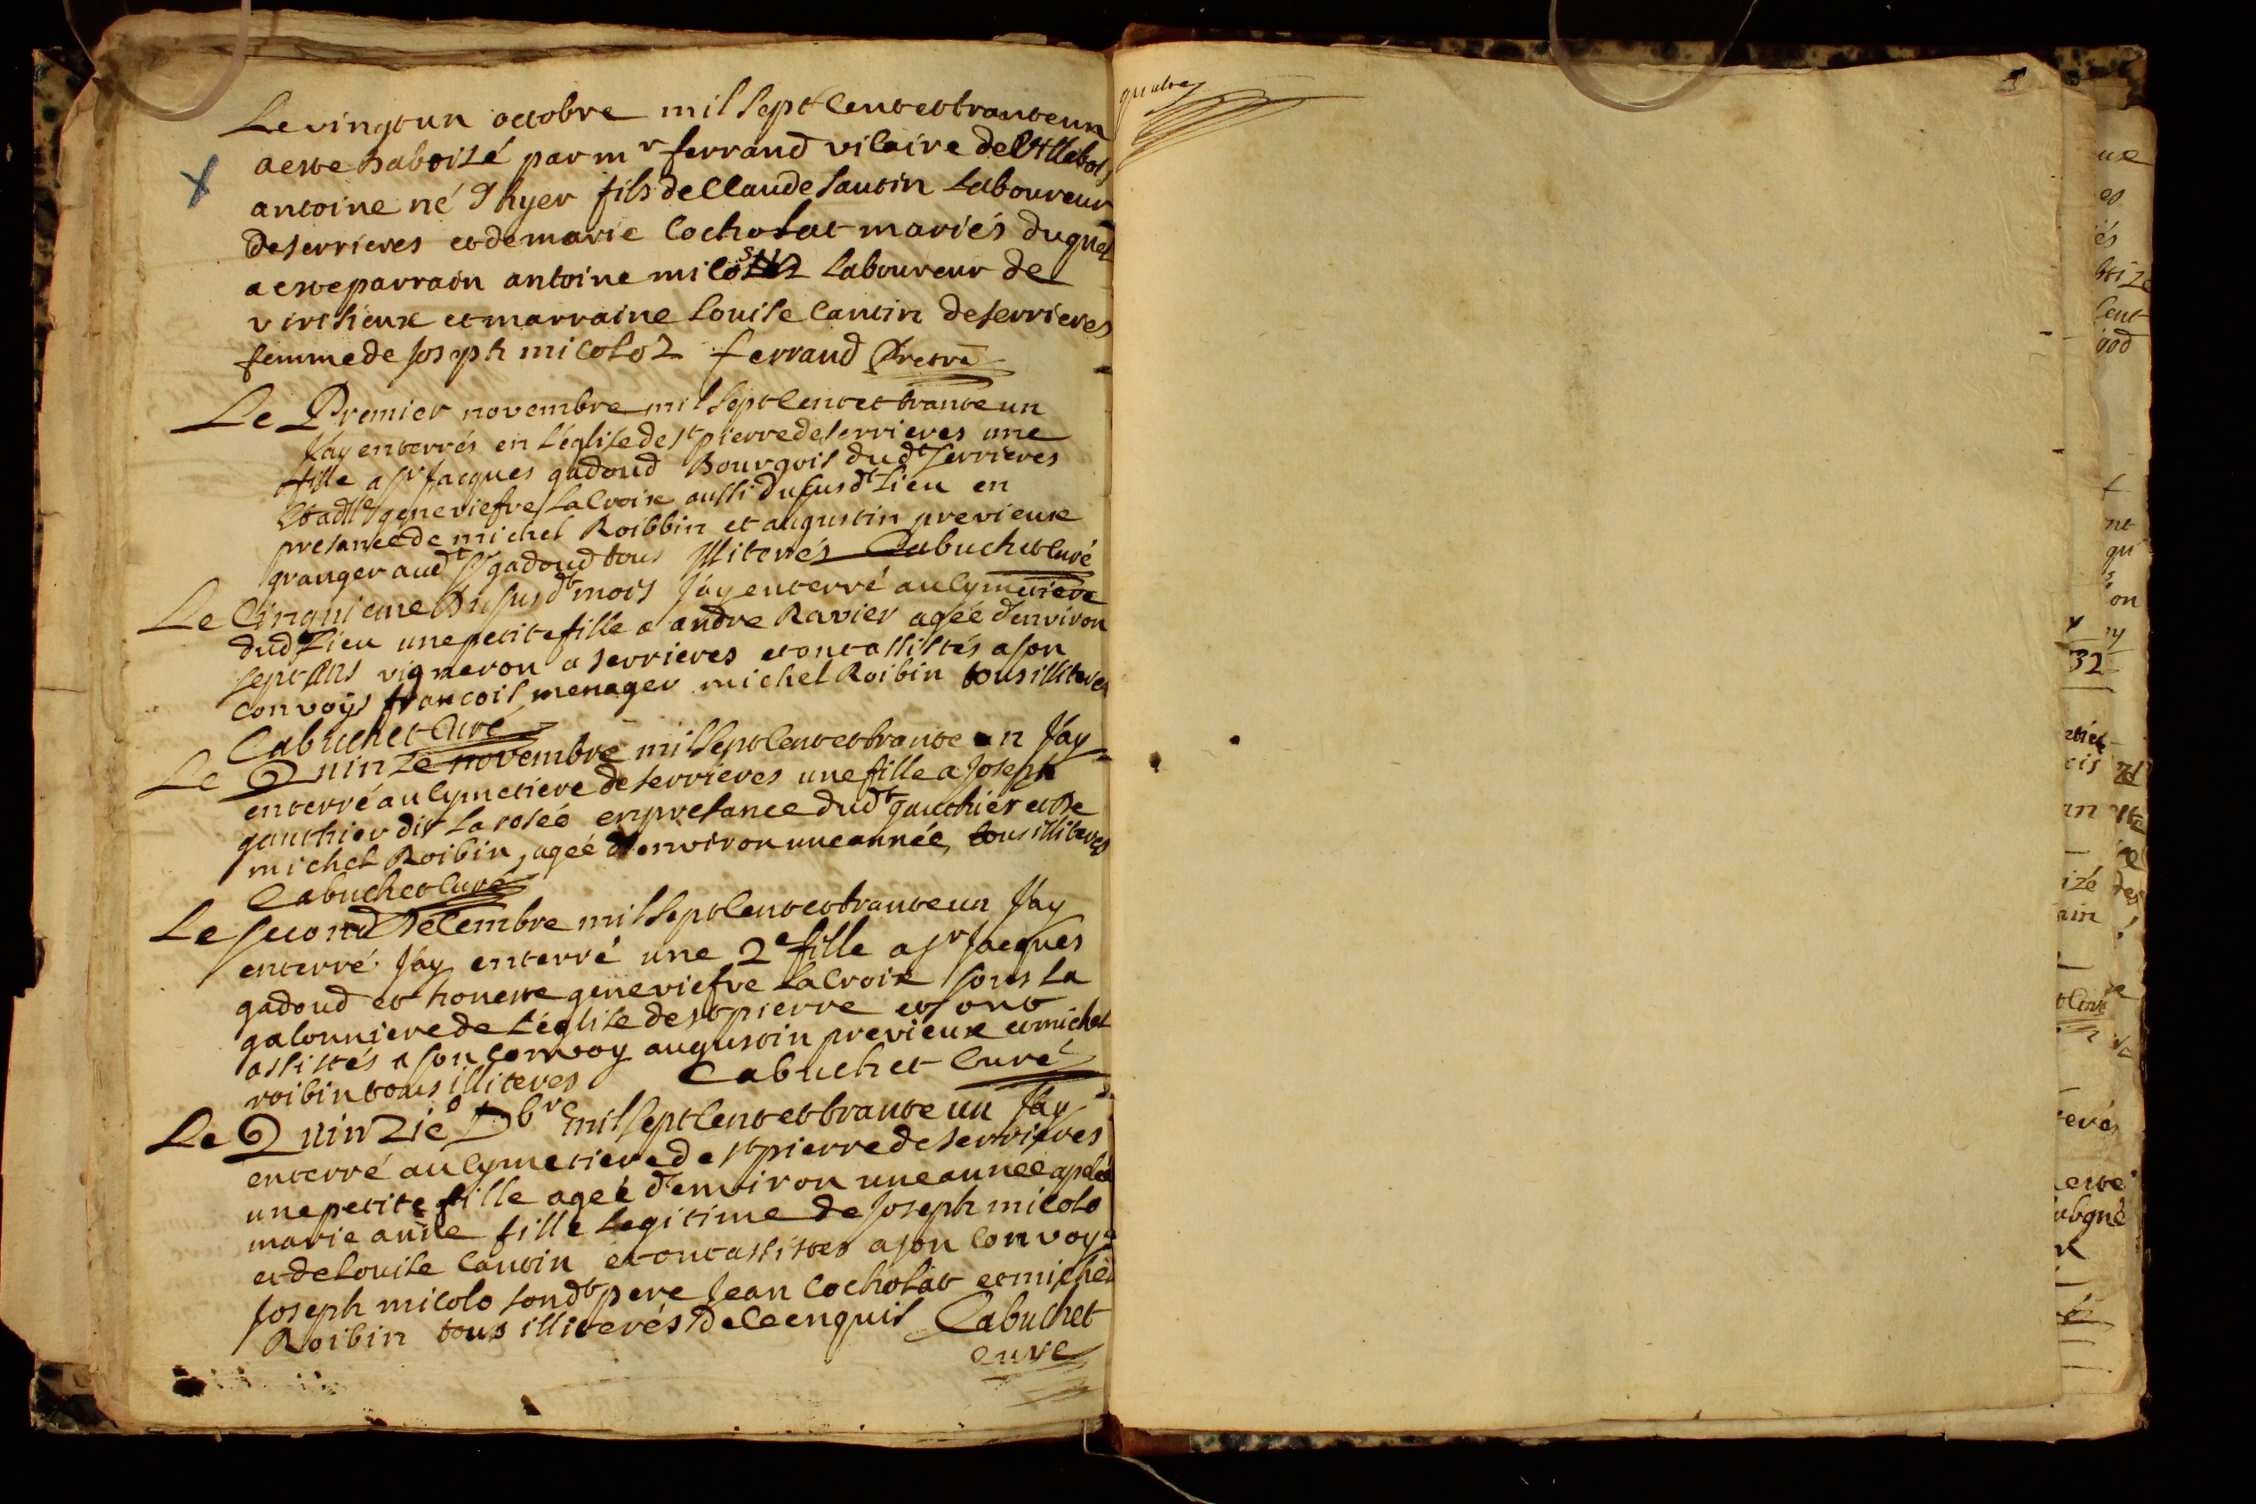 Le vingt un octobre mil sept Cent et trante un
a este babtisé par mr ferrand vicaire de Villebois
antoine né d'hyer fils de Claude Cantin Laboureur
de serrieres et de marie Cocholat mariés duquel
a este parrain antoine micoloz Laboureur de
virisieux et marraine Louise Cantin de serrieres
femme de Joseph micoloz ferrand Pretre
Le Premier novembre mil Sept Cent et trante un
J'ay enterrés en L'église de st pierre de serrieres une
fille a sr Jacques gadoud Bourgois dudt serrieres
et a dlle geneviefve LaCroix aussi du susdt Lieu en
presance de michel Roibbin et augustin previeux
granger audt sr gadoud tous illiterés Cabuchet Curé
Le Cinquieme du susdt mois J'ay enterré au Cymetiere
dud Lieu une petite fille a andre Ravier agée d'environ
sept ans vigneron a serrieres et ont assistés a son
convoys francois menager michel Roibin tous illiteres
Cabuchet Curé
Le Quinze novembre mil sept Cent et trante un J'ay
enterré au Cymetiere de serrieres une fille a Joseph
gauthier dit La rosée en presance dudt gauthier et de
michel Roibin, agée d'environ une année, tous illiteres
Cabuchet Curé
Le second décembre mil sept Cent et trante un J'ay
enterré J'ay enterré une 2e fille a sr Jacques
gadoud et honeste genevieve LaCroix sous La
galonniere de L'église de st pierre et ont
assistés a son convoy augustin previeux et michel
roibin tous illiteres Cabuchet Curé
Le Quinzie Dbre mil sept Cent et trante un J'ay
enterré au Cymetiere de st pierre de serrieres
une petite fille ageé d'environ une année apelée
marie anne fille Legitime de Joseph micolo
et de Louise Cantin et ont assistes a son Convoy
Joseph micolo sondt pere Jean Cocholat et michel
Roibin tous illiterés de Ce enquis Cabuchet
Curé
quatre